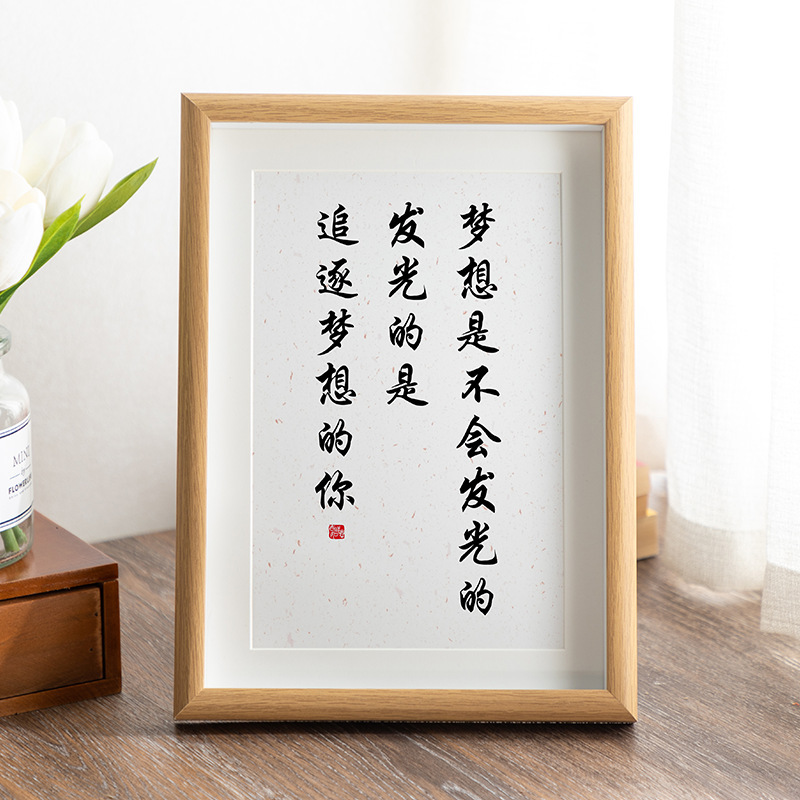 梦想是不会发光的
发光的是
追逐梦想的你
MIN
FLOWER